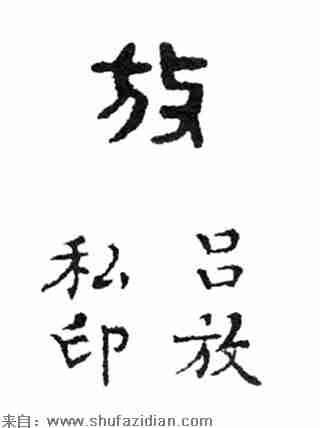 放
吕放
私印
来自：www.shufazidian.com